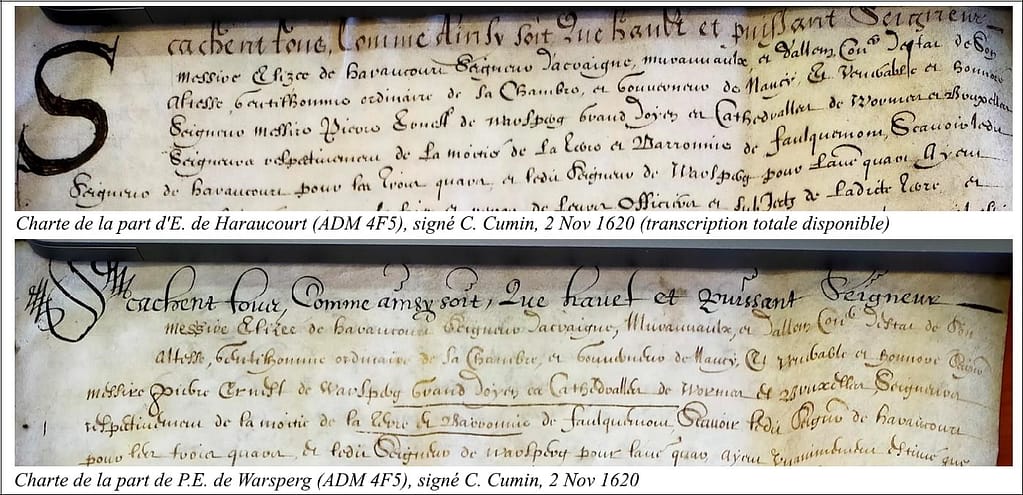 Scachent tous, Comme Ainsy soit Que hault et puissant Seigneur
messire Elizee de haraucourt Seigneur dacraigne, muravaulx, et dallem Con.er destat de Son
Altesse, Gentilhomme ordinaire de sa Chambre, et Gouverneur de Nancy, Et Venerable et honnoré
Seigneur messire Pierre Ernest de warsperg Grand doyen es Cathedralles de wormes et Bruxelles
Seigneurs respectivement de la moitié de la terre et Barronnie de faulquemont, Scavoir ledit
Seigneur de haraucourt pour les trois quars, et ledit Seigneur de warsperg pour laultre quart, Ayent
de leurs Officiers et subjets de ladicte terre, et
Charte de la part d'E. de Haraucourt (ADM 4F5), signé C. Cumin, 2 Nov 1620 (transcription totale disponible)
Scachent tous, Comme ainsy soit, Que hault et Puissant Seigneur
messire Elizee de haraucourt Seigneur dacraigne, Muravaulx, et dallem Con.er destat de Son
Altesse, Gentilhomme ordinaire de sa Chambre, et Gouverneur de Nancy, Et venerable et honnoré
messire Pierre Ernest de warsperg Grand doyen es Cathedralles de wormes et Bruxelles, Seigneurs
respectivement de la moitie de la terre et Barronnie de faulquemont, Scavoir ledit Seigneur de haraucourt
pour les trois quars, et ledit Seigneur de warsperg pour laultre quart, ayent
Charte de la part de P.E. de Warsperg (ADM 4F5), signé C. Cumin, 2 Nov 1620